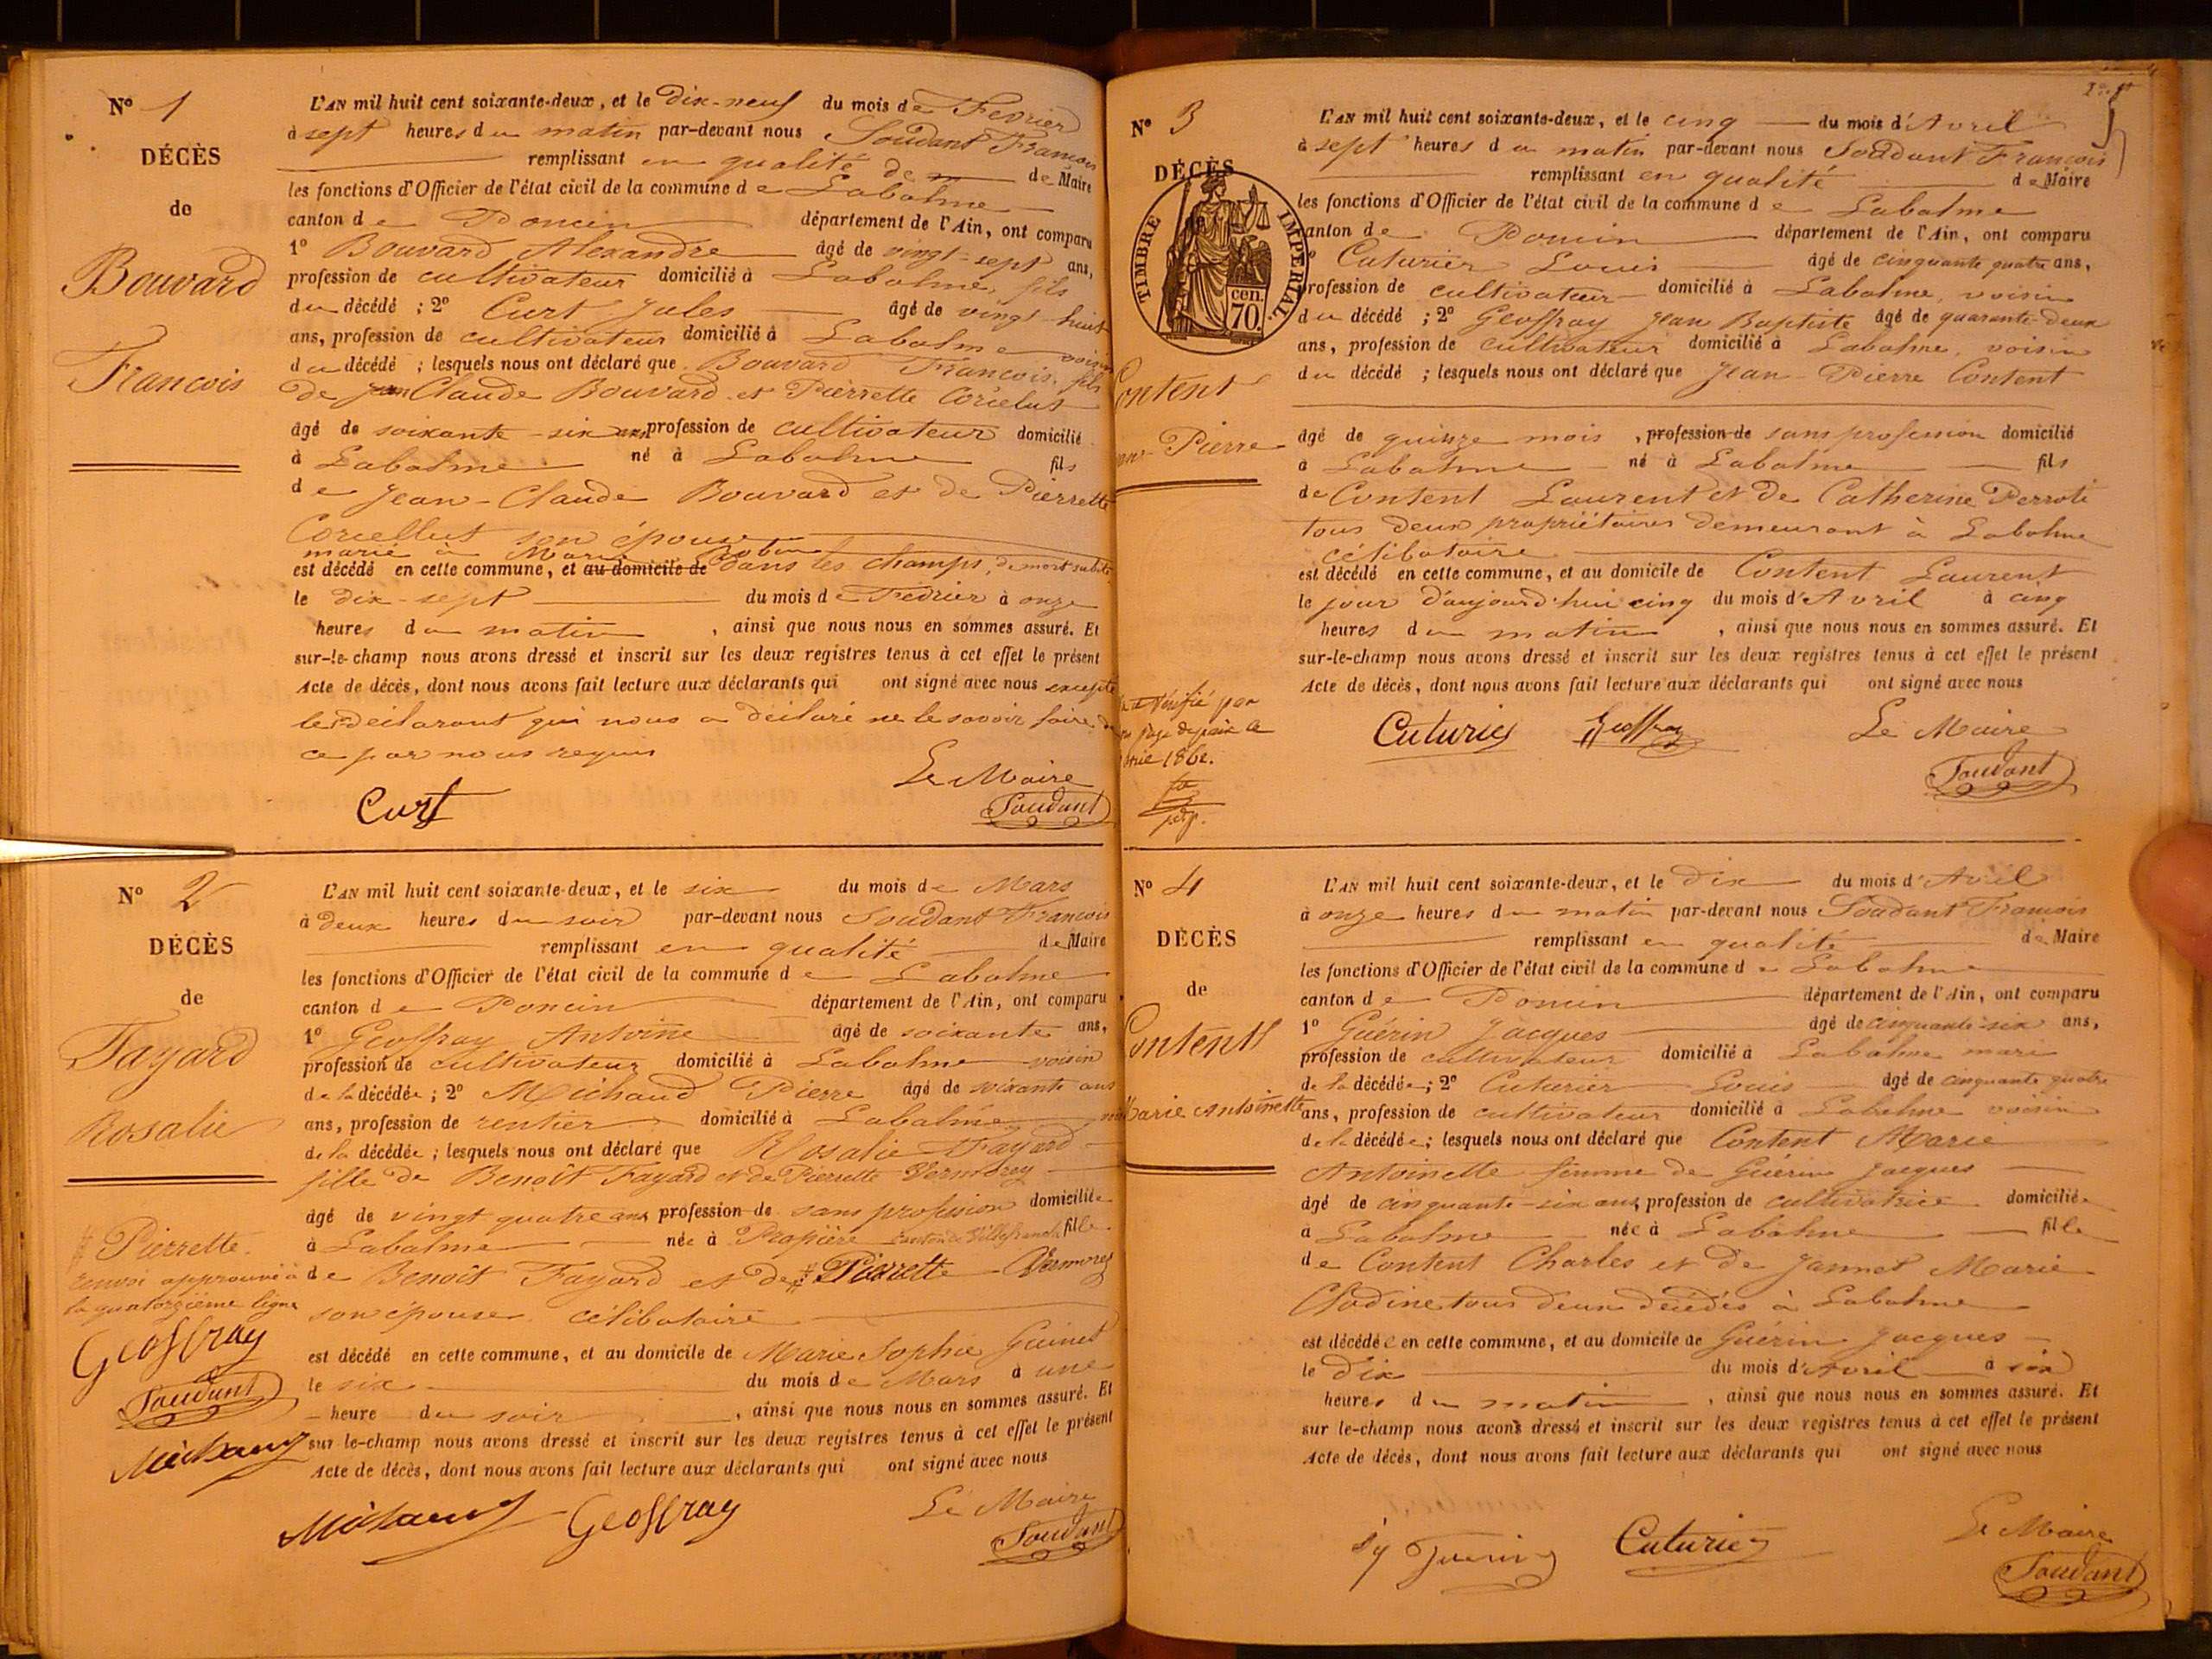 N° 1
DÉCÈS
de
Bouvard
François
L'AN mil huit cent soixante-deux, et le dix-neuf du mois de Fevrier
à sept heures du matin par-devant nous Soudant François
remplissant en qualité de de Maire
les fonctions d'Officier de l'état civil de la commune de Labalme
canton de Poncin département de l'Ain, ont comparu
1° Bouvard Alexandre âgé de vingt-sept ans,
profession de cultivateur domicilié à Labalme, fils
du décédé ; 2° Curt Jules âgé de vingt-huit
ans, profession de cultivateur domicilié à Labalme voisin
du décédé ; lesquels nous ont déclaré que Bouvard François, fils
de Claude Bouvard et Pierrette Corcelut
âgé de soixante-six ans profession de cultivateur domicilié
à Labalme né à Labalme fils
de Jean-Claude Bouvard et de Pierrette
Corcellut son épouse
marié à Marie Robin
est décédé en cette commune, et au domicile de dans les champs, de mort subite
le dix-sept du mois de Fevrier à onze
heures du matin, ainsi que nous nous en sommes assuré. Et
sur-le-champ nous avons dressé et inscrit sur les deux registres tenus à cet effet le présent
Acte de décès, dont nous avons fait lecture aux déclarants qui ont signé avec nous excepté
le 1er déclarant qui nous a déclaré ne le savoir faire de
ce par nous requis
Le Maire
Curt Soudant
N° 2
DÉCÈS
de
Fayard
Rosalie
# Pierrette
renvoi approuvé à
la quatorzième ligne
Geoffray
Soudant
Michaud
L'AN mil huit cent soixante-deux, et le six du mois de Mars
à deux heures du soir par-devant nous Soudant François
remplissant en qualité de Maire
les fonctions d'Officier de l'état civil de la commune de Labalme
canton de Poncin département de l'Ain, ont comparu
1° Geoffray Antoine âgé de soixante ans,
profession de cultivateur domicilié à Labalme voisin
de la décédée ; 2° Michaud Pierre âgé de soixante ans
ans, profession de rentier domicilié à Labalme
de la décédée ; lesquels nous ont déclaré que Rosalie Fayard
fille de Benoît Fayard et de Pierrette Vermorey
âgé de vingt quatre ans profession de sans profession domiciliée
à Labalme née à Propière canton de Villefranche fille
de Benoît Fayard et de # Pierrette Vermorey
son épouse célibataire
est décédé en cette commune, et au domicile de Marie Sophie Guinet
le six du mois de Mars à une
heure du soir, ainsi que nous nous en sommes assuré. Et
sur-le-champ nous avons dressé et inscrit sur les deux registres tenus à cet effet le présent
Acte de décès, dont nous avons fait lecture aux déclarants qui ont signé avec nous
Le Maire
Michaud Geoffray Soudant
N° 3
DÉCÈS
TIMBRE IMPÉRIAL
70 cen.
Content
Pierre
Vérifié par
1862.
L'AN mil huit cent soixante-deux, et le cinq du mois d'Avril
à sept heures du matin par-devant nous Soudant François
remplissant en qualité de Maire
les fonctions d'Officier de l'état civil de la commune de Labalme
canton de Poncin département de l'Ain, ont comparu
Cuturier Louis âgé de cinquante quatre ans,
profession de cultivateur domicilié à Labalme, voisin
du décédé ; 2° Geoffray Jean Baptiste âgé de quarante-deux
ans, profession de cultivateur domicilié à Labalme, voisin
du décédé ; lesquels nous ont déclaré que Jean Pierre Content
âgé de quinze mois, profession de sans profession domicilié
à Labalme né à Labalme fils
de Content Laurent et de Catherine Perroti
tous deux propriétaires demeurant à Labalme
célibataire
est décédé en cette commune, et au domicile de Content Laurent
le jour d'aujourd'hui cinq du mois d'Avril à cinq
heures du matin, ainsi que nous nous en sommes assuré. Et
sur-le-champ nous avons dressé et inscrit sur les deux registres tenus à cet effet le présent
Acte de décès, dont nous avons fait lecture aux déclarants qui ont signé avec nous
Cuturier Geoffray Le Maire
Soudant
N° 4
DÉCÈS
de
Content
Marie Antoinette
L'AN mil huit cent soixante-deux, et le dix du mois d'Avril
à onze heures du matin par-devant nous Soudant François
remplissant en qualité de Maire
les fonctions d'Officier de l'état civil de la commune de Labalme
canton de Poncin département de l'Ain, ont comparu
1° Guérin Jacques âgé de cinquante-six ans,
profession de cultivateur domicilié à Labalme mari
de la décédée ; 2° Cuturier Louis âgé de cinquante quatre
ans, profession de cultivateur domicilié à Labalme voisin
de la décédée ; lesquels nous ont déclaré que Content Marie
Antoinette femme de Guérin Jacques
âgé de cinquante-six ans, profession de cultivatrice domiciliée
à Labalme née à Labalme fille
de Content Charles et de Jannet Marie
Clodine tous deux décédés à Labalme
est décédée en cette commune, et au domicile de Guérin Jacques
le dix du mois d'Avril à six
heures du matin, ainsi que nous nous en sommes assuré. Et
sur le-champ nous avons dressé et inscrit sur les deux registres tenus à cet effet le présent
Acte de décès, dont nous avons fait lecture aux déclarants qui ont signé avec nous
Le Maire
Guerin Cuturier Soudant